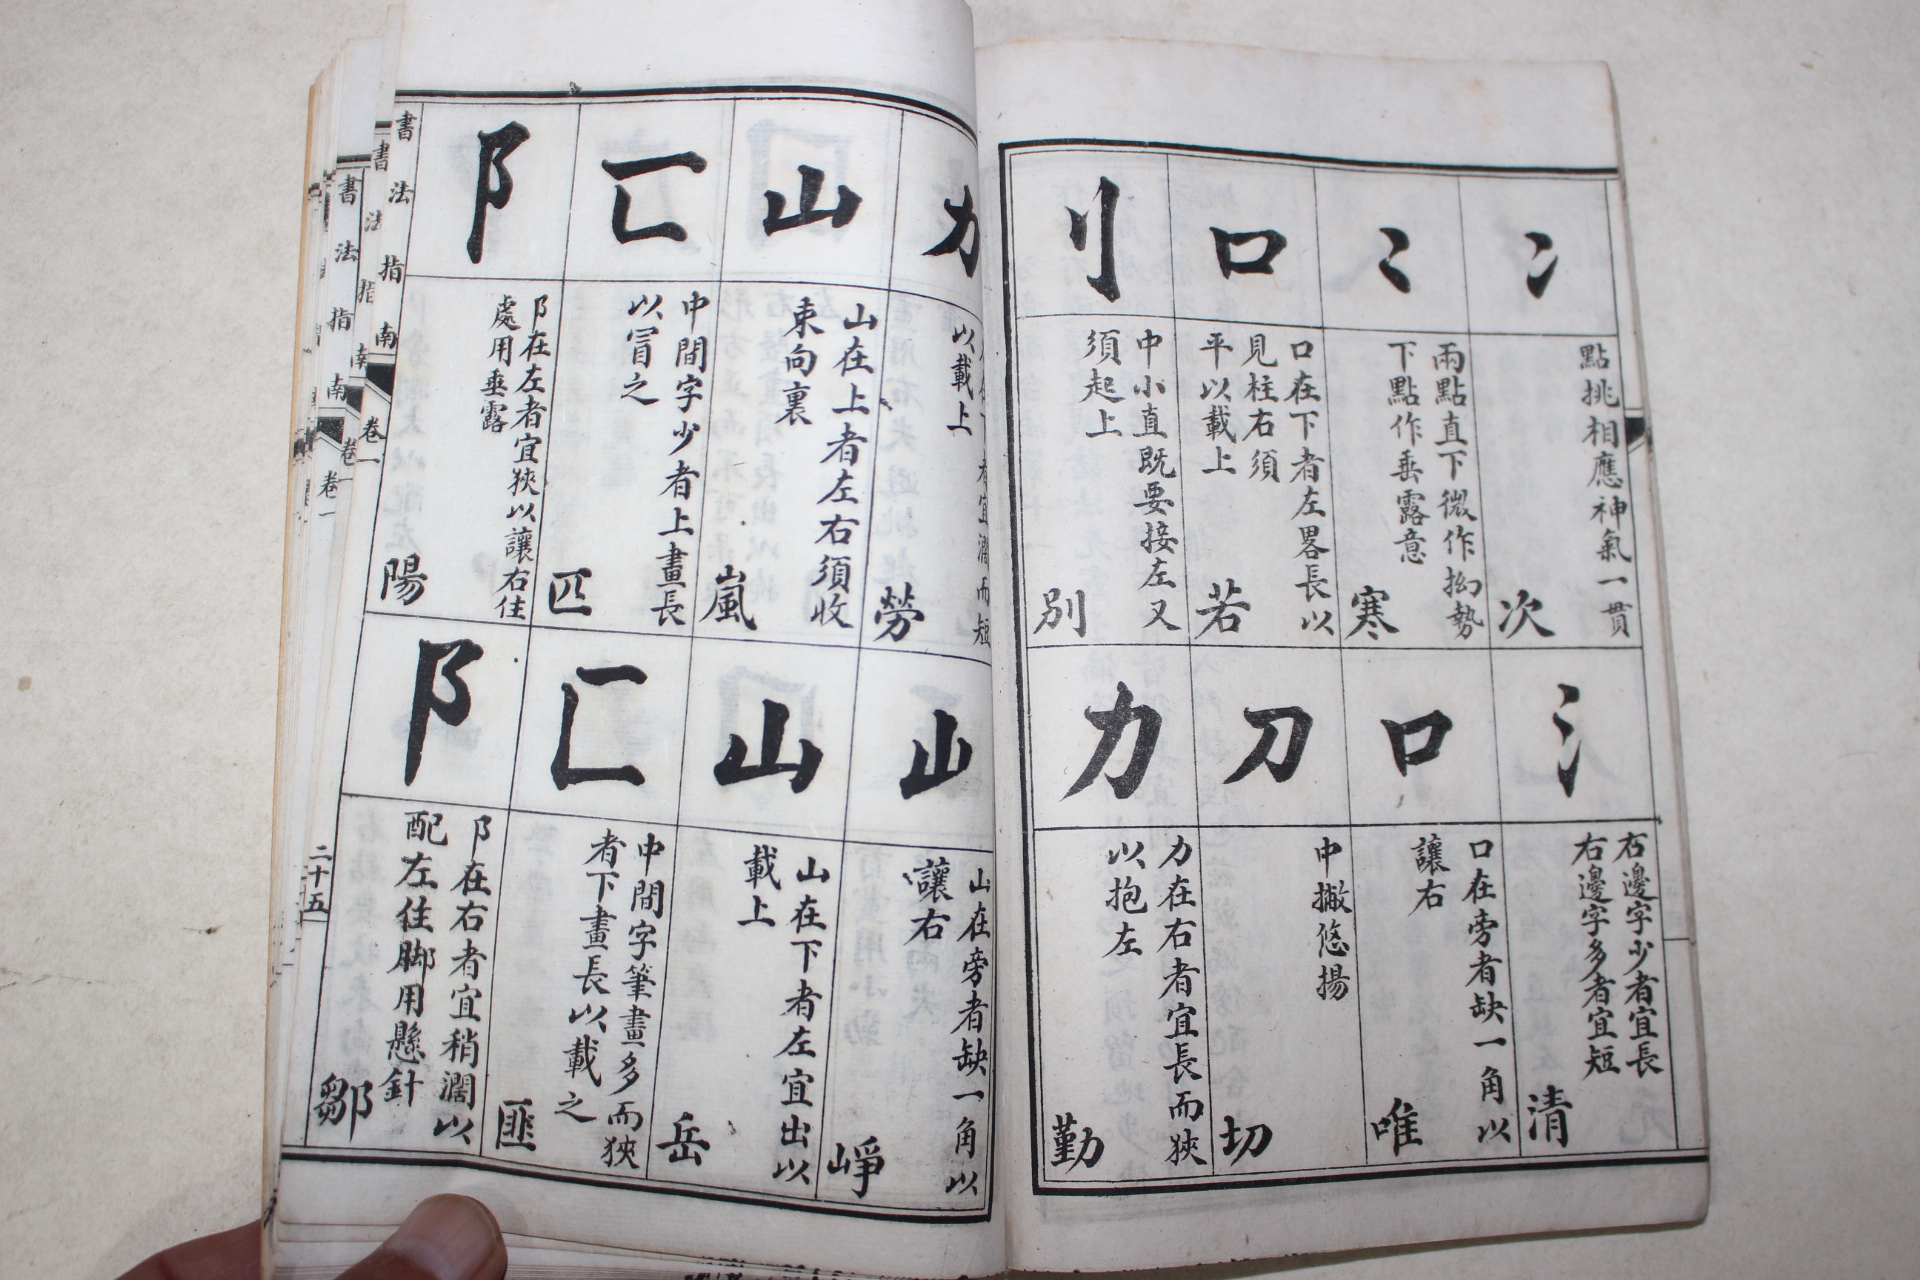 冫
點挑相應神氣一貫
次
⺀
兩點直下微作拗勢
下點作垂露意
寒
口
口在下者左畧長以
見柱右須
平以載上
若
刂
中小直既要接左又
須起上
別
氵
右邊字少者宜長
右邊字多者宜短
清
口
口在旁者缺一角以
讓右
唯
刀
中撇悠揚
切
力
力在右者宜長而狹
以抱左
勤
力
者宜濶而短
以載上
勞
山
山在上者左右須收
束向裏
嵐
匚
中間字少者上畫長
以冒之
匹
阝
阝在左者宜狹以讓右住
處用垂露
陽
山
山在旁者缺一角以
讓右
崢
山
山在下者左宜出以
載上
岳
匚
中間字筆畫多而狹
者下畫長以載之
匪
阝
阝在右者宜稍濶以
配左住脚用懸針
鄒
書法指南
卷一
二十五
書法指南
卷一
書法指南
卷一